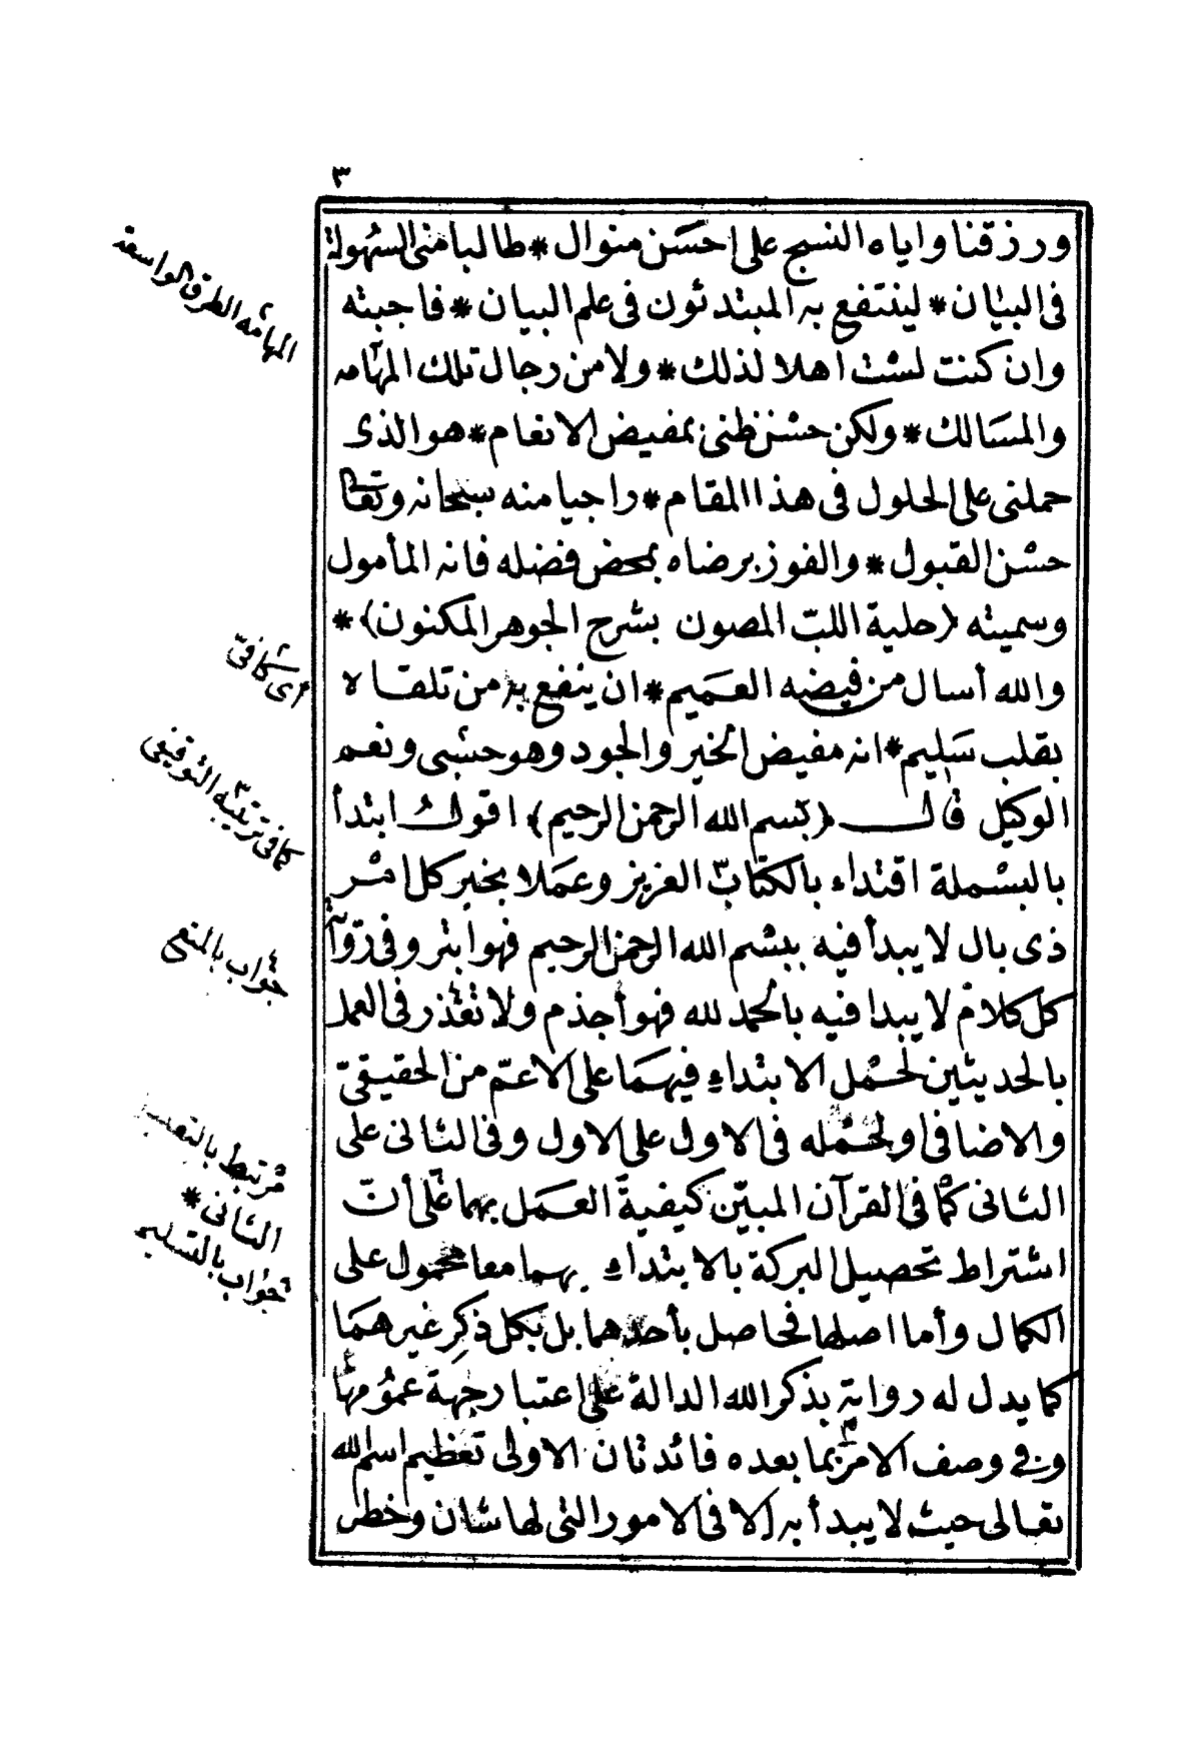 ٣
ورزقنا واياه النسج على احسن منوال * طالبا منى السهولة
فى البيان * لينتفع به المبتدئون فى علم البيان * فاجبته
وان كنت لست اهلا لذلك * ولا من رجال تلك المهامه
والمسالك * ولكن حسن ظنى بمفيض الانعام * هو الذى
حملنى على الحلول فى هذا المقام * راجيا منه سبحانه وتعا
حسن القبول * والفوز برضاه بمحض فضله فانه المأمول
وسميته (حلية اللبّ المصون بشرح الجوهر المكنون) *
والله أسال من فيضه العميم * ان ينفع به من تلقاه
بقلب سليم * انه مفيض الخير والجود وهو حسبى ونعم
الوكيل قال (بسم الله الرحمن الرحيم) اقول ابتدأ
بالبسملة اقتداء بالكتاب العزيز وعملا بخبر كل امر
ذى بال لا يبدأ فيه ببسم الله الرحمن الرحيم فهو ابتر وفى رواية
كل كلام لا يبدا فيه بالحمد لله فهو أجذم ولا تعذر فى العمل
بالحديثين لحمل الابتداء فيهما على الاعمّ من الحقيقىّ
والاضافى او لحمله فى الاول على الاول وفى الثانى على
الثانى كما فى القرآن المبيّن كيفية العمل بهما على أن
اشتراط تحصيل البركة بالابتداء بهما معا محمول على
الكمال وأما اصلها فحاصل بأحدهما بل بكل ذكر غيرهما
كما يدل له رواية بذكر الله الدالة على اعتبار جهة عمومها
وفى وصف الامر بما بعده فائدتان الاولى تعظيم اسم الله
تعالى حيث لا يبدأ به الا فى الامور التى لها شان وخطر
المهامه الطرق الواسعة
أى كافىّ
كما فى ترتيبه التوقيفى
جواب بالمنع
مرتبط بالتعب
الثانى *
جواب بالتسليم